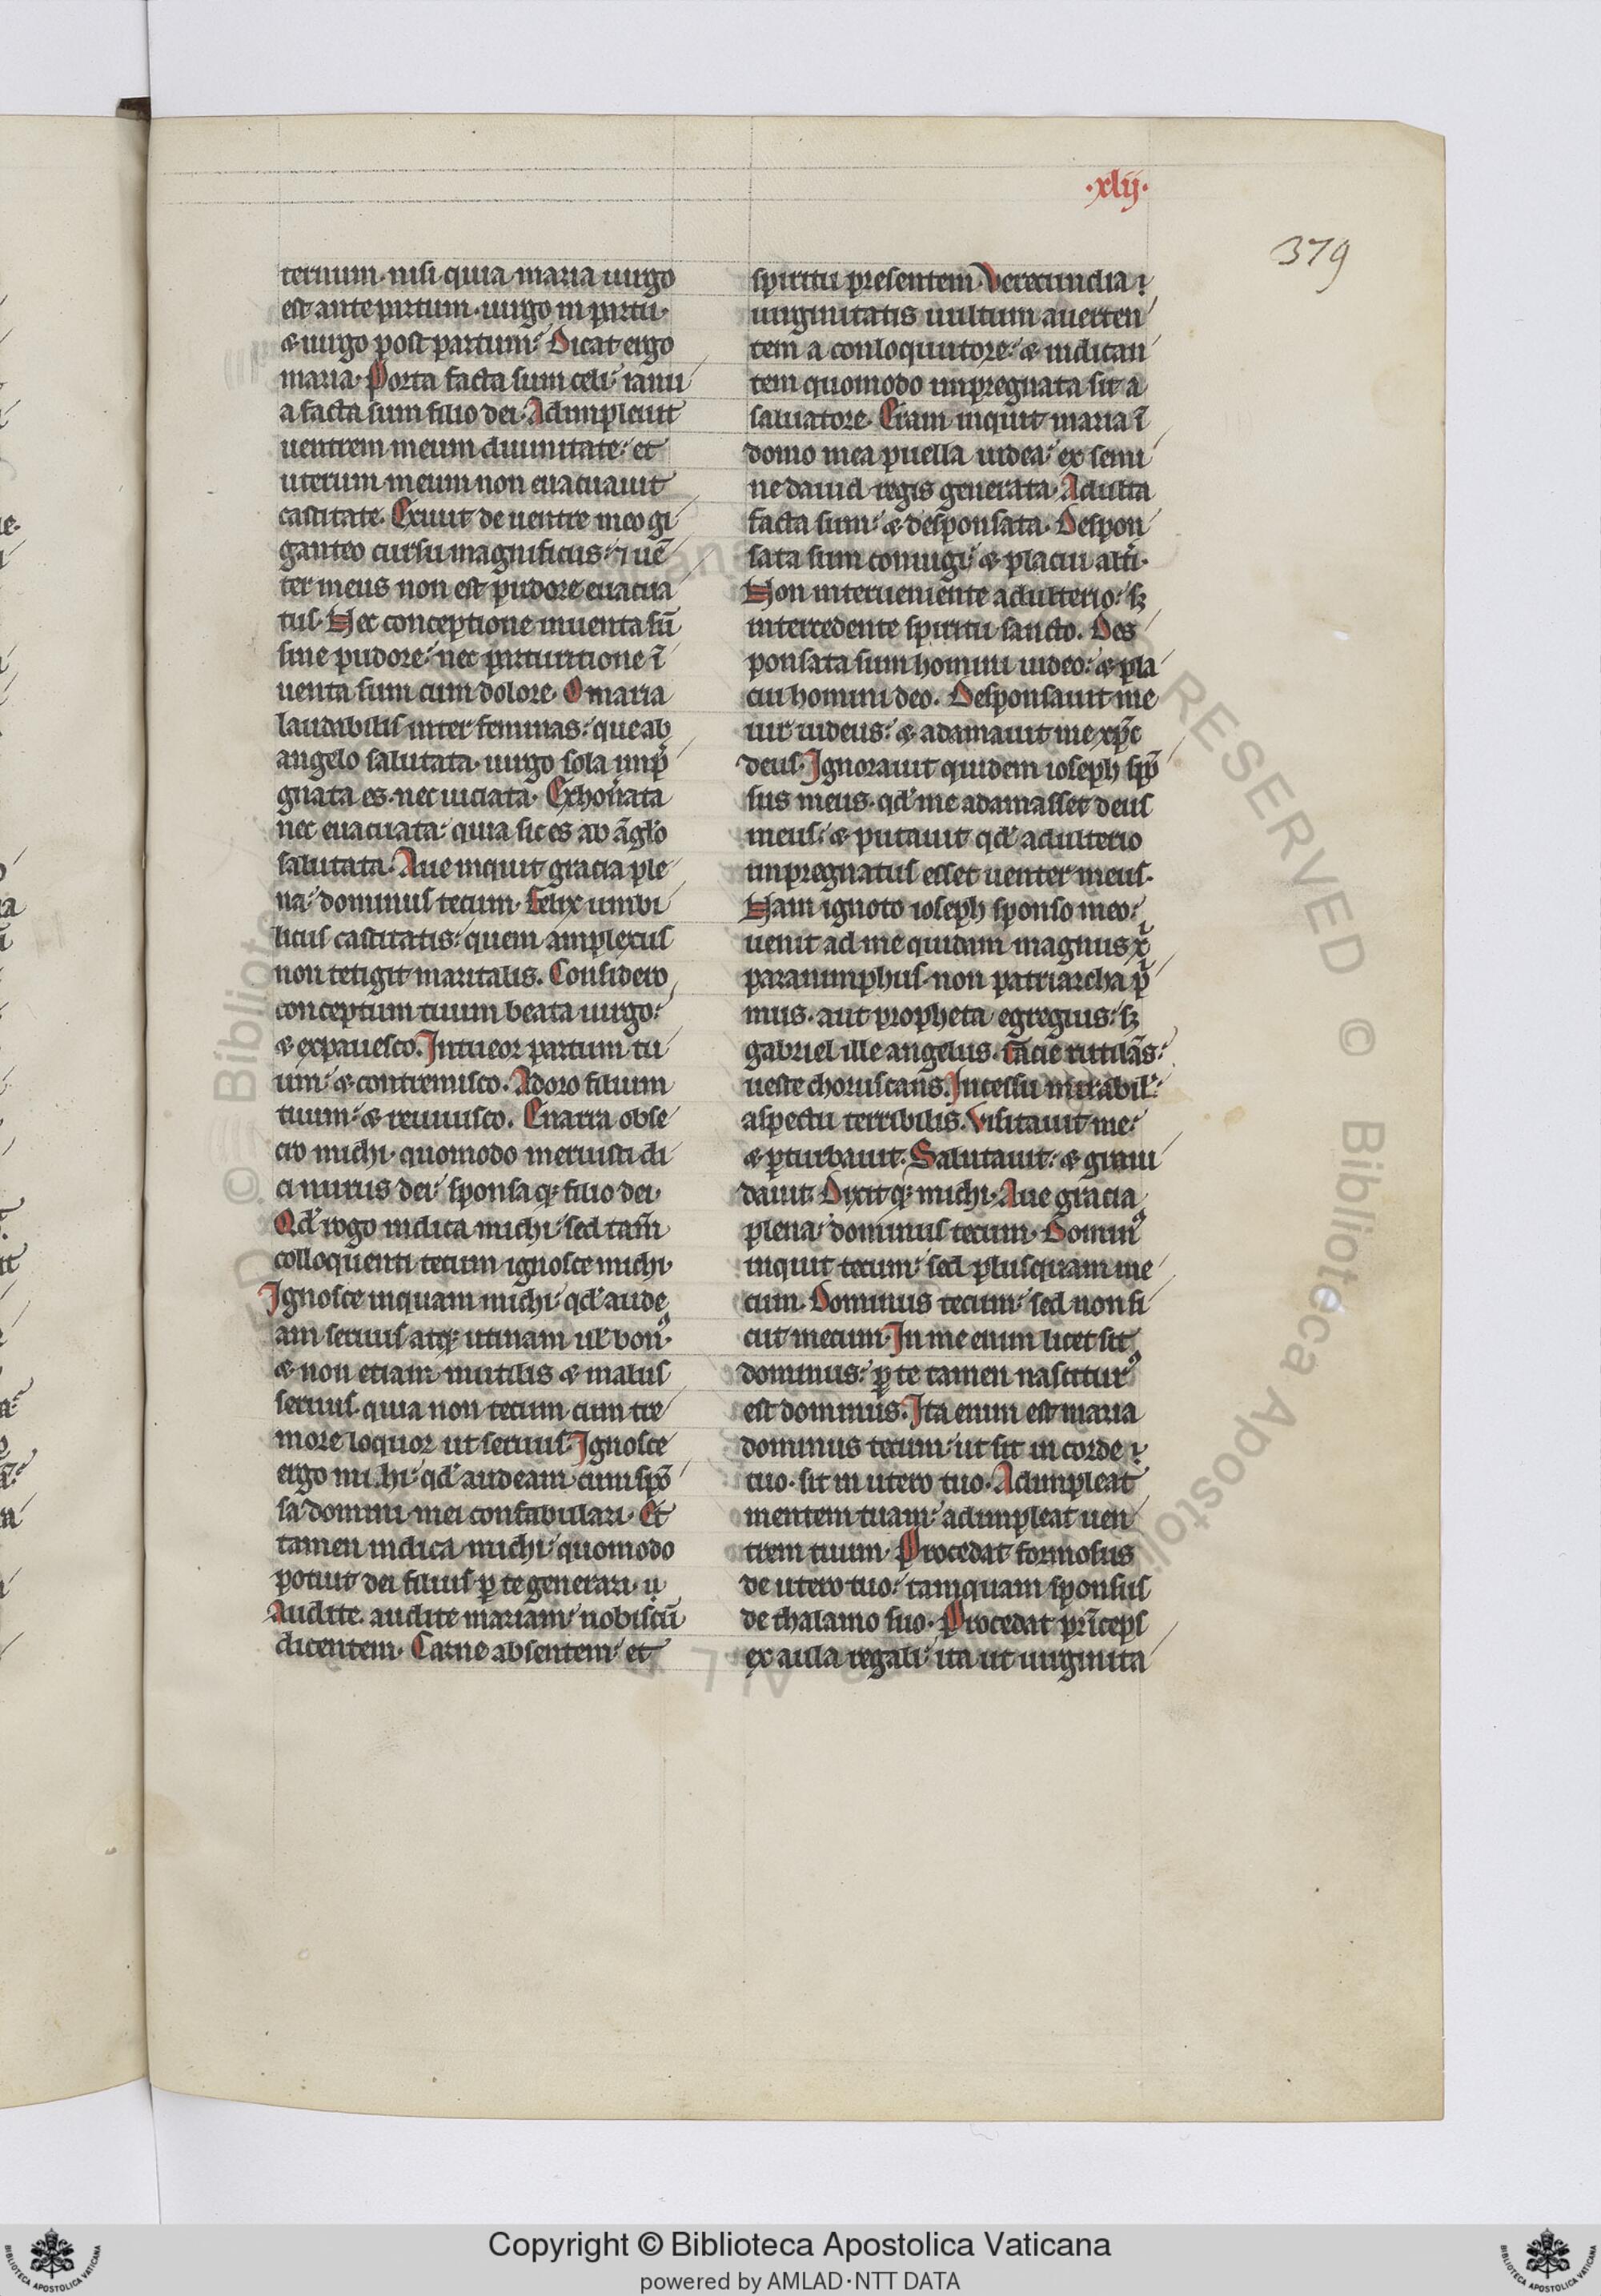 ·xlij·
379
ternum· nisi quia maria uirgo
est ante partum· uirgo in partu·
& uirgo post partum· Dicat ergo
maria· Porta facta sum celi· ianu
a facta sum filio dei· Adimpleuit
uentrem meum diuinitate· et
uterum meum non euacuauit
castitate. Exiuit de uentre meo gi
ganteo cursu magnificus· ⁊ uē
ter meus non est pudore euacua
tus· Nec conceptione inuenta sū
sine pudore· nec parturitione ī
uenta sum cum dolore· O maria
laudabilis inter feminas· que ab
angelo salutata· uirgo sola imp̄
gnata es· nec uiciata· Exhon̄ata
nec euacuata· quia sic es ab āgło
salutata· Aue inquit gracia ple
na· dominus tecum· Felix umbi
licus castitatis· quem amplexus
non tetigit maritalis. Considero
conceptum tuum beata uirgo·
& expauesco. Intueor partum tu
um· & contremisco. Adoro filium
tuum· & reuiuisco. Enarra obse
cro michi· quomodo meruisti di
ci nurus dei· sponsa qꝫ filio dei·
Qd' rogo indica michi· sed tam̄
colloquenti tecum ignosce michi·
Ignosce inquam michi· qd' aude
am seruus atqꝫ utinam ul' bonꝰ·
& non etiam inutilis & malus
seruus· quia non tecum cum tre
more loquor ut seruus· Ignosce
ergo michi· qd' audeam cum spō
sa domini mei confabulari· Et
tamen indica michi· quomodo
potuit dei filius ꝑ te generari·
Audite audite mariam· nobiscū
dicentem· Carne absentem· et
spiritu presentem· Verecundia
uirginitatis uultum auerten
tem a conloquutore· & indican
tem quomodo impregnata sit a
saluatore· Eram inquit maria ī
domo mea puella iudea· ex semi
ne dauid regis generata· Adulta
facta sum· & desponsata· Despon
sata sum coniugi· & placui alt'i·
Non interueniente adulterio· sꝫ
intercedente spiritu sancto. Des
ponsata sum homini iudeo· & pla
cui homini deo. Desponsauit me
uir iudeus· & adamauit me xp̄c
deus· Ignorauit quidem ioseph spō
sus meus· qd' me adamasset deus
meus· & putauit qd' adulterio
impregnatus esset uenter meus·
Nam ignoto ioseph sponso meo·
uenit ad me quidam magnus xp̄i
paranimphus· non patriarcha p̄
mus· aut propheta egregius· sꝫ
gabriel ille angelus· facie rutilās·
ueste choruscans· Incessu mirabil'·
aspectu terribilis. Visitauit me·
& ꝑturbauit. Salutauit· & graui
dauit· Dixit qꝫ michi· Aue gracia
plena· dominus tecum· Dominꝰ
inquit tecum· sed plusquam me
cum· Dominus tecum· sed non si
cut mecum· In me enim licet sit
dominus· ꝑ te tamen nasciturꝰ
est dominus· Ita enim est maria
dominus tecum· ut sit in corde
tuo· sit in utero tuo· Adimpleat
mentem tuam· adimpleat uen
trem tuum· Procedat formosus
de utero tuo· tamquam sponsus
de thalamo suo· Procedat prīceps
ex aula regali· ita ut uirginita
Copyright © Biblioteca Apostolica Vaticana
powered by AMLAD·NTT DATA